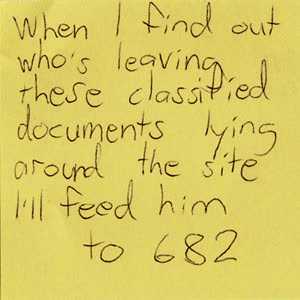 When I find out
who's leaving
these classified
documents lying
around the site
I'll feed him
to 682